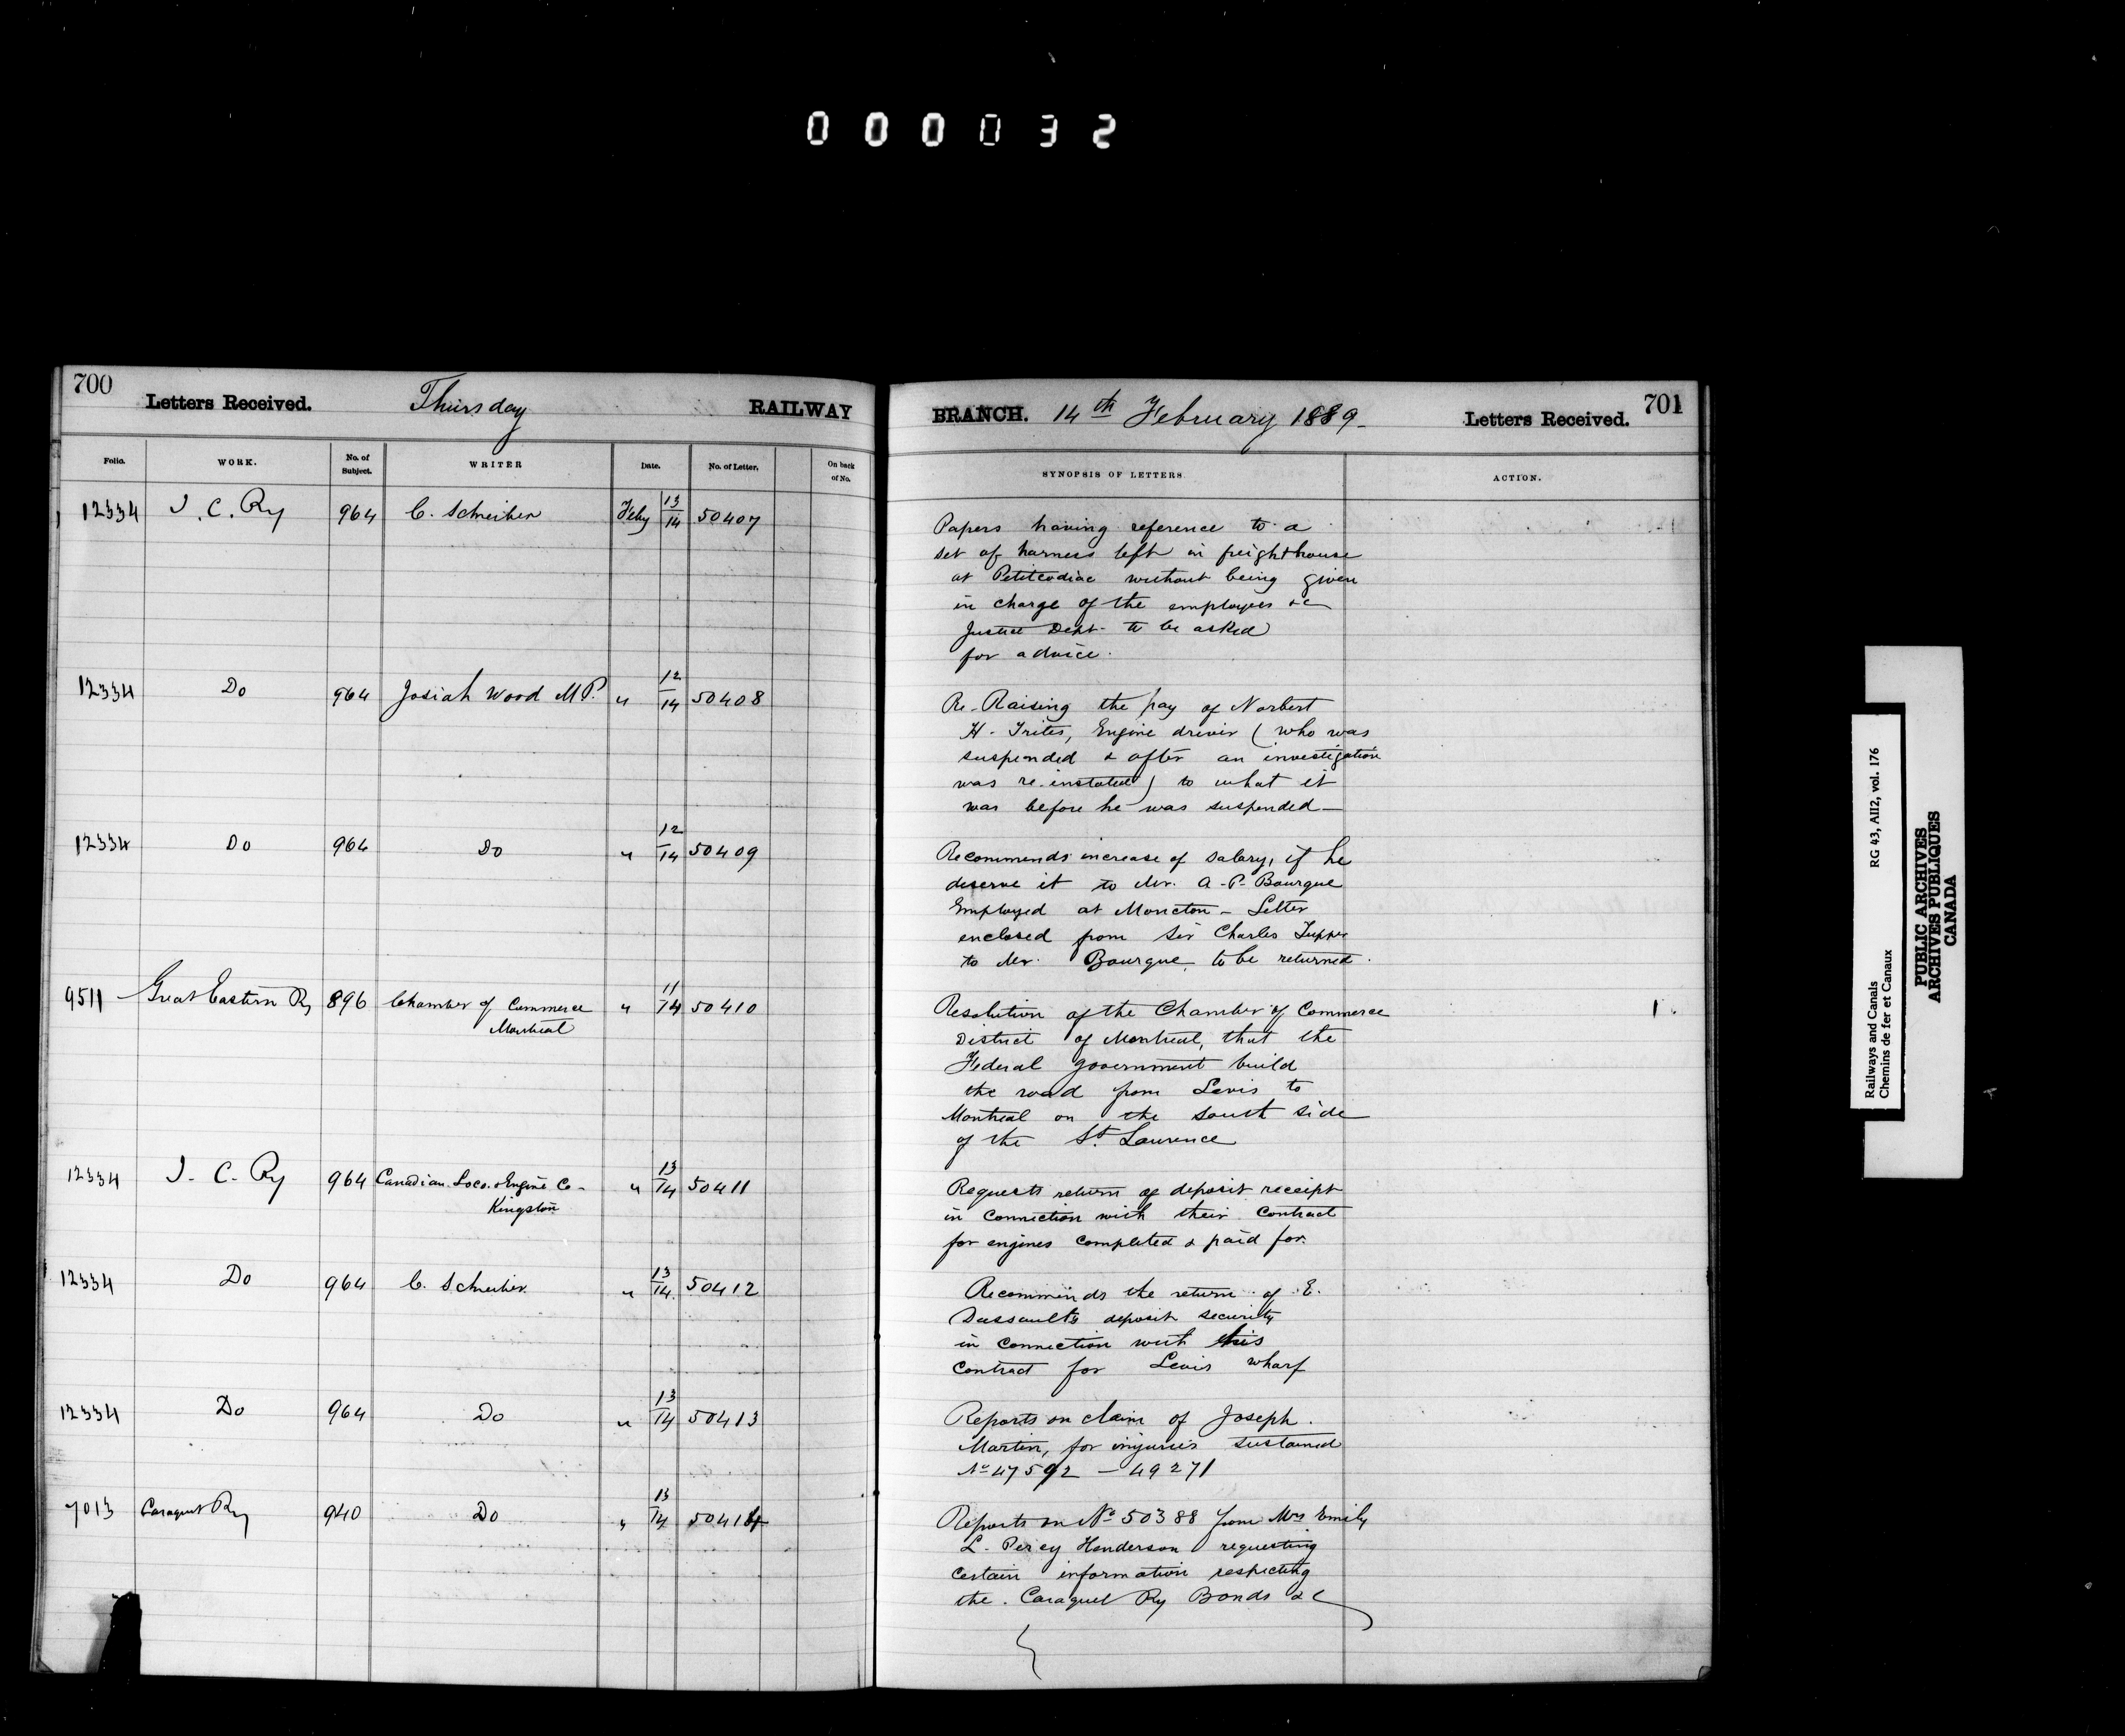 000032
700
Letters Received.
Thursday
RAILWAY
Folio.
WORK.
No. of Subject.
WRITER
Date.
No. of Letter.
On back of No.
12334 I. C. Ry 964 C. Schreiber Feby 13/14 50407
12334 Do 964 Josiah Wood M.P. " 12/14 50408
12334 Do 964 Do " 12/14 50409
9511 Great Eastern Ry 896 Chamber of Commerce " 11/14 50410
Montreal
12334 I. C. Ry 964 Canadian Loco. & Engine Co - " 13/14 50411
Kingston
12334 Do 964 C. Schreiber " 13/14 50412
12334 Do 964 Do " 13/14 50413
7013 Caraquet Ry 940 Do " 13/14 50414
BRANCH. 14th February 1889 -
Letters Received.
701
SYNOPSIS OF LETTERS
ACTION.
Papers having reference to a
set of harness left in freight house
at Petitcodiac without being given
in charge of the employees &c
Justice Dept. to be asked
for advice.
Re-Raising the pay of Norbert
H. Trites, Engine driver (who was
suspended & after an investigation
was re-instated) to what it
was before he was suspended -
Recommends increase of salary, if he
deserve it to Mr. A. P. Bourque
Employed at Moncton - Letter
enclosed from Sir Charles Tupper
to Mr. Bourque, to be returned.
Resolution of the Chamber of Commerce
District of Montreal, that the
Federal government build
the road from Levis to
Montreal on the South side
of the St. Laurence
1.
Requests return of deposit receipt
in connection with their Contract
for engines completed & paid for.
Recommends the return of E.
Dussault's deposit security
in connection with his
Contract for Levis wharf
Reports on claim of Joseph
Martin, for injuries sustained
No 47592 - 49271
Reports on No 50388 from Mrs Emily
L. Percy Henderson requesting
Certain information respecting
the Caraquet Ry Bonds &c
Railways and Canals RG 43, AII2, vol. 176
Chemins de fer et Canaux
PUBLIC ARCHIVES
ARCHIVES PUBLIQUES
CANADA